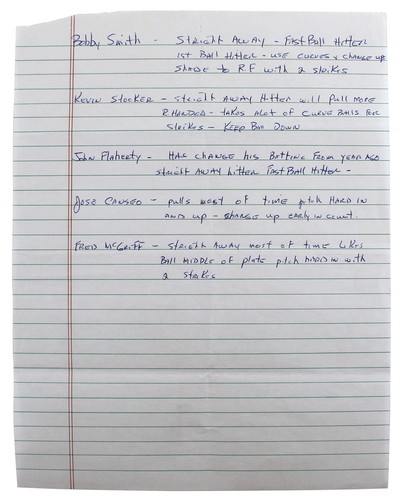 Bobby Smith - Stright Away - Fast Ball Hitter
1st Ball Hitter - use curves & change up
Shade to R.F with 2 strikes
Kevin Stocker - stright away Hitter will pull more
R. Handed - takes alot of curve balls for
strikes - Keep Ball Down
John Flaherty - Has change his Batting From year ago
stright away hitter Fast Ball Hitter -
Jose Canseco - pulls most of time pitch Hard in
and up - change up early in count.
Fred McGriff - stright away most of time Likes
Ball middle of plate pitch hard in with
2 strikes